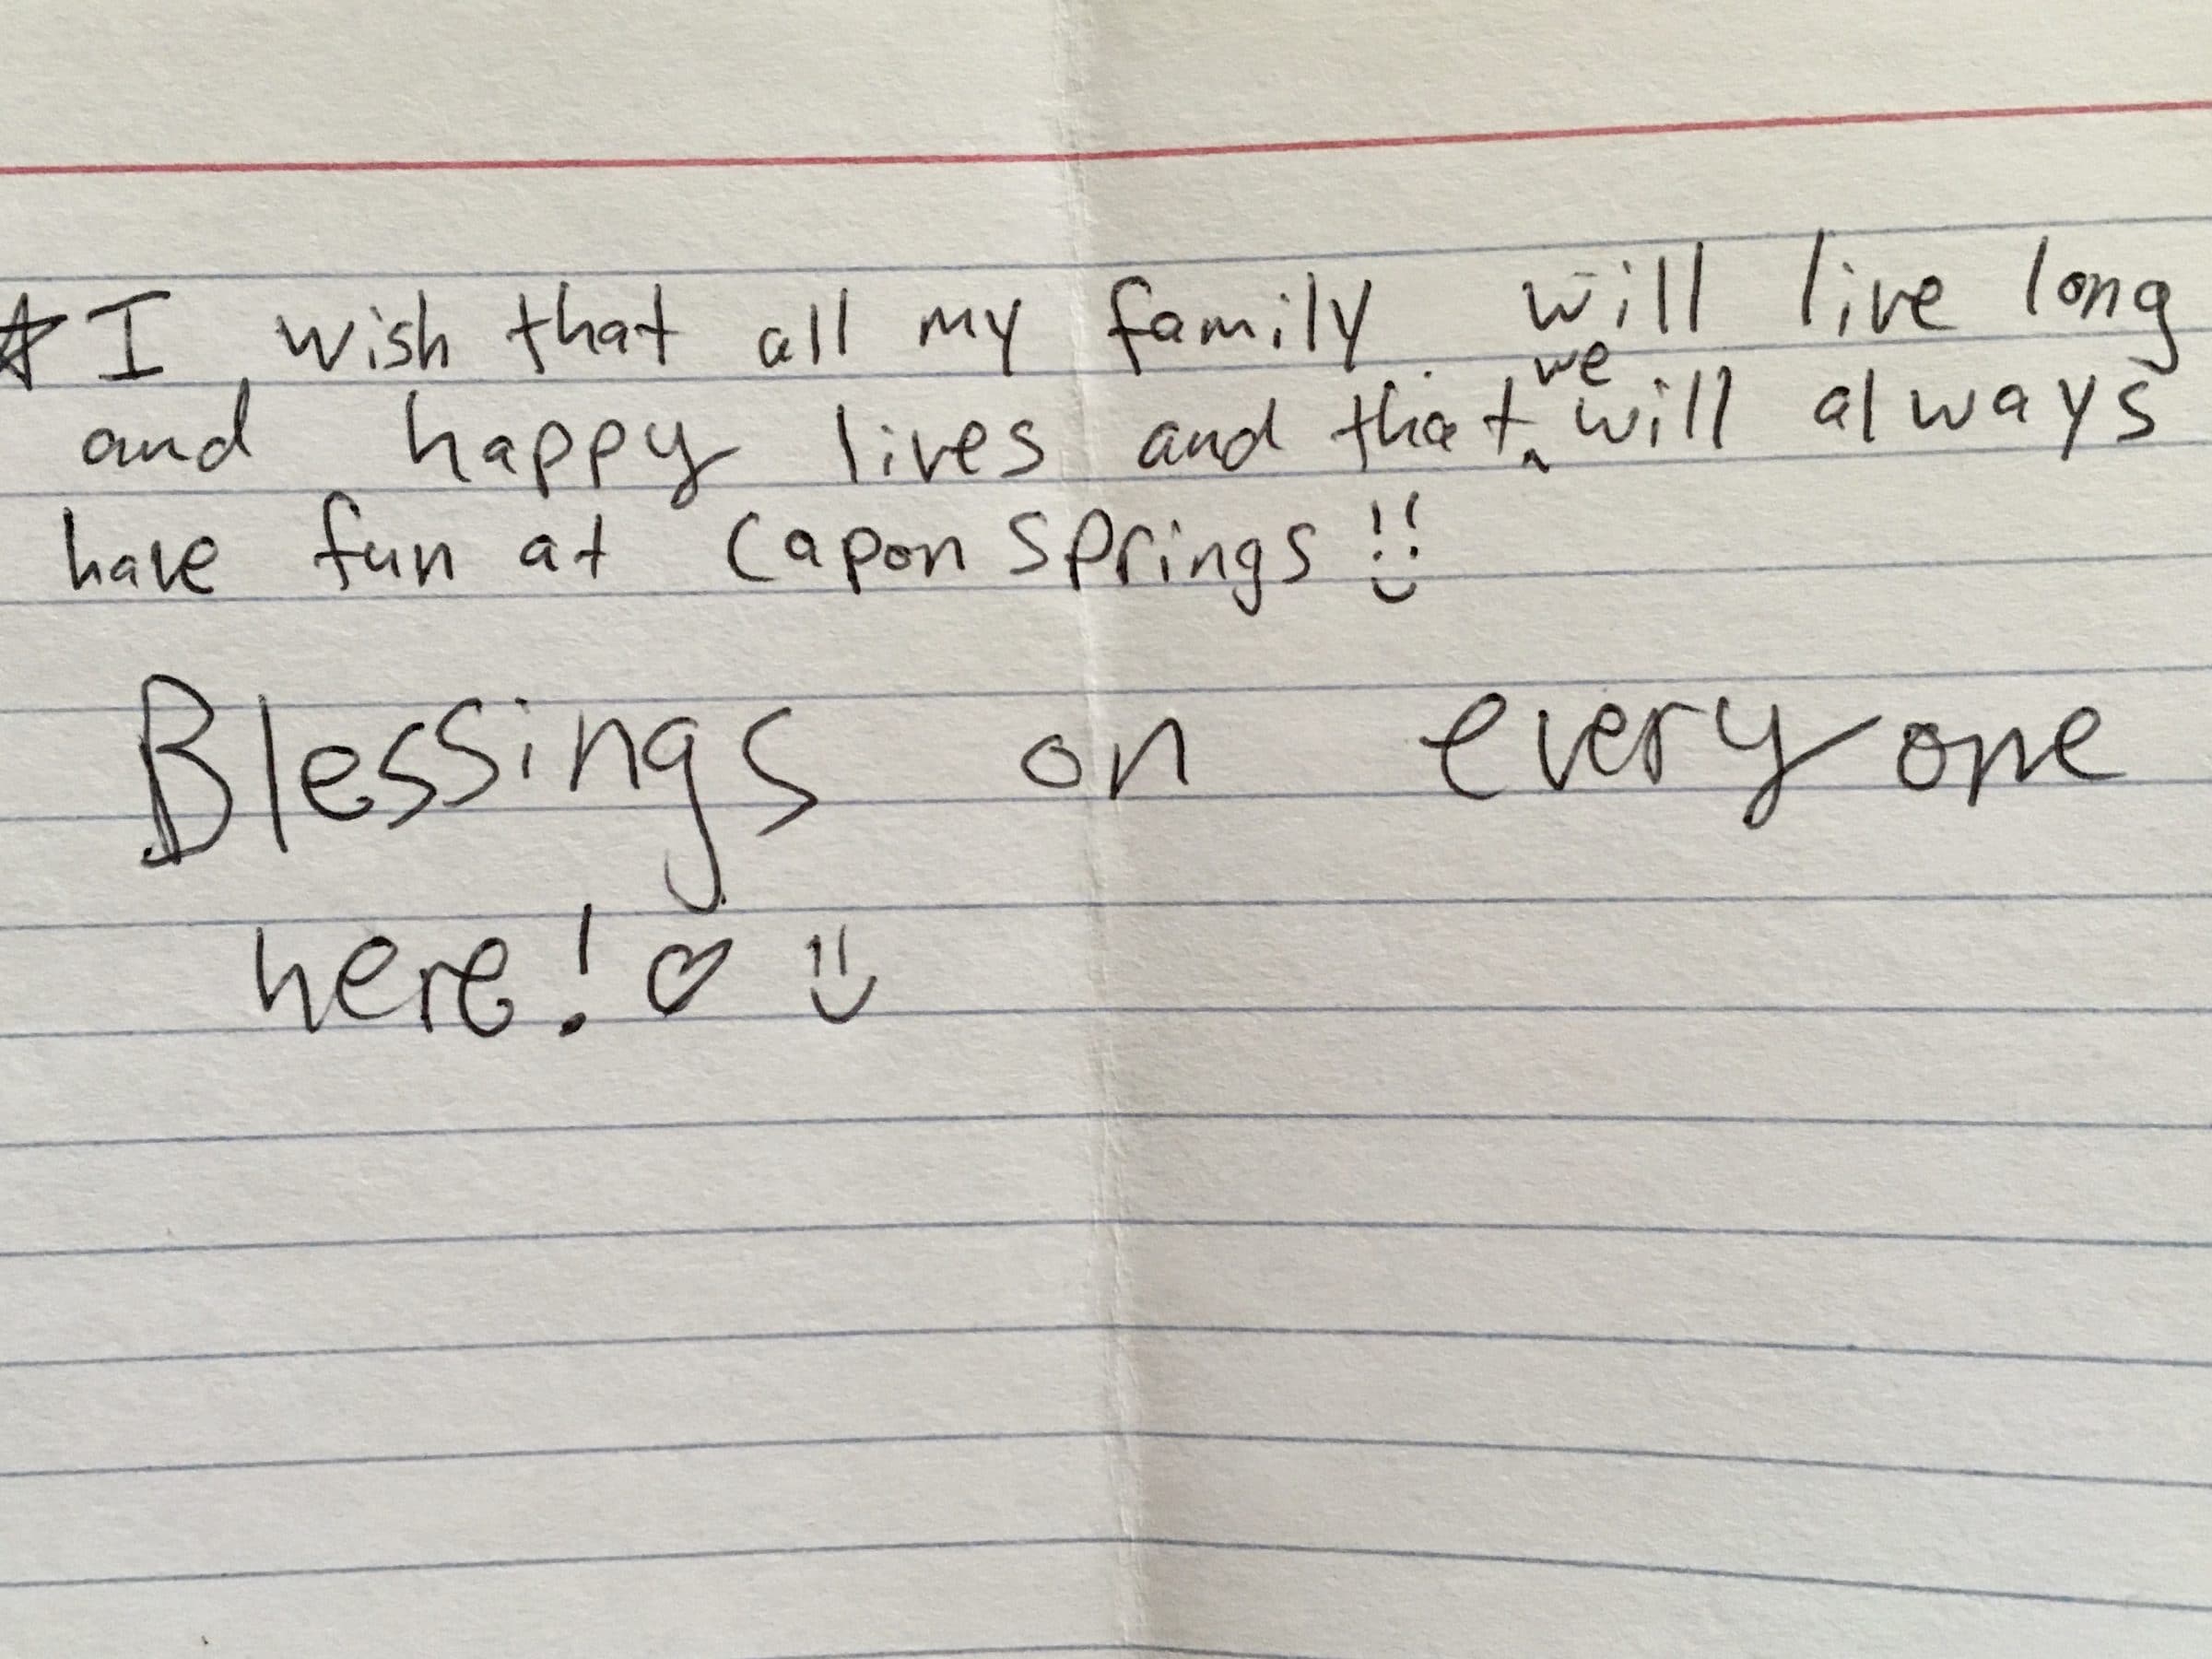 ☆ I wish that all my family will live long
and happy lives and that we will always
have fun at Capon Springs!!
Blessings on everyone
here! ♡ :)